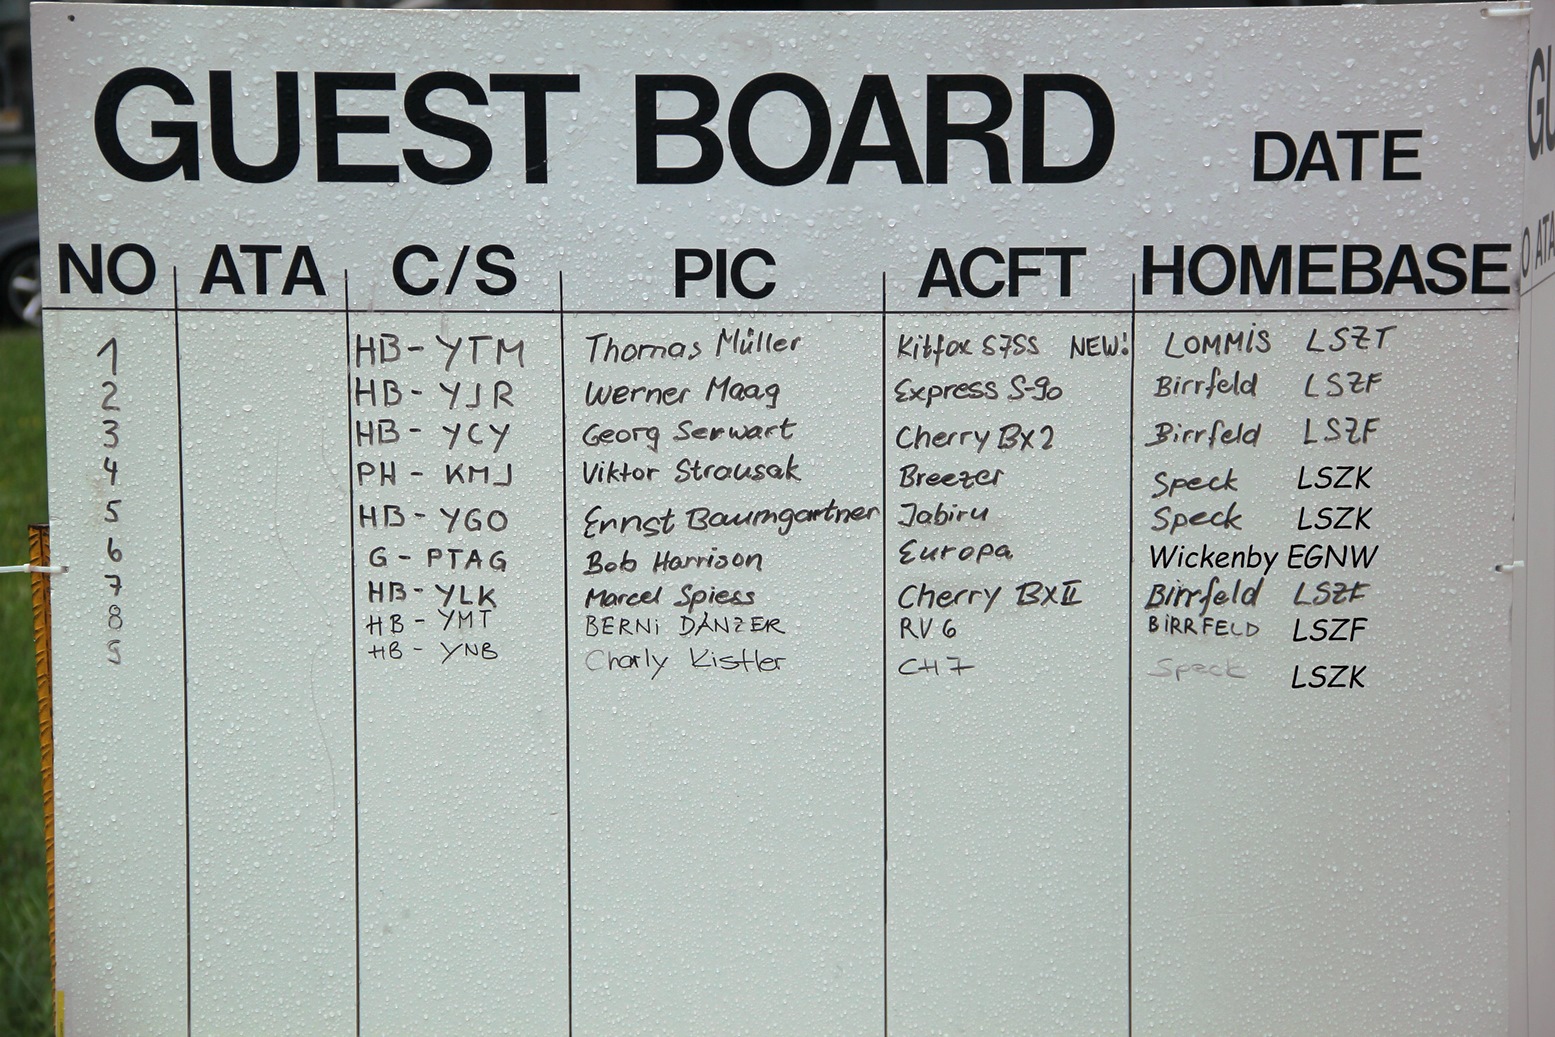 GUEST BOARD DATE
NO ATA C/S PIC ACFT HOMEBASE
1 HB-YTM Thomas Müller Kitfox S7SS NEW! LOMMIS LSZT
2 HB-YJR Werner Maag Express S-90 Birrfeld LSZF
3 HB-YCY Georg Serwart Cherry BX2 Birrfeld LSZF
4 PH-KMJ Viktor Strausak Breezer Speck LSZK
5 HB-YGO Ernst Baumgartner Jabiru Speck LSZK
6 G-PTAG Bob Harrison Europa Wickenby EGNW
7 HB-YLK Marcel Spiess Cherry BXII Birrfeld LSZF
8 HB-YMT BERNI DÄNZER RV6 BIRRFELD LSZF
9 HB-YNB Charly Kistler CH7 Speck LSZK
GU
O ATA